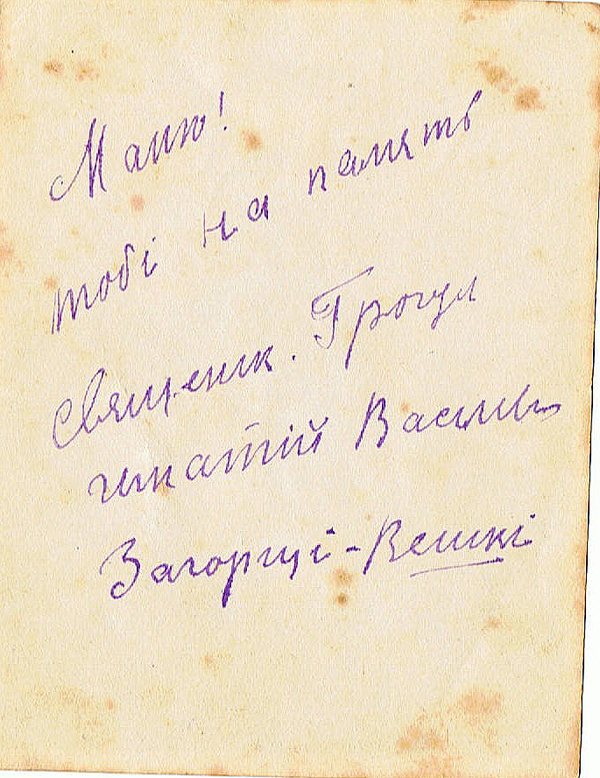 Маню!
тобі на память
Священик. Трочул
гипатій Василь
Загорці-Великі